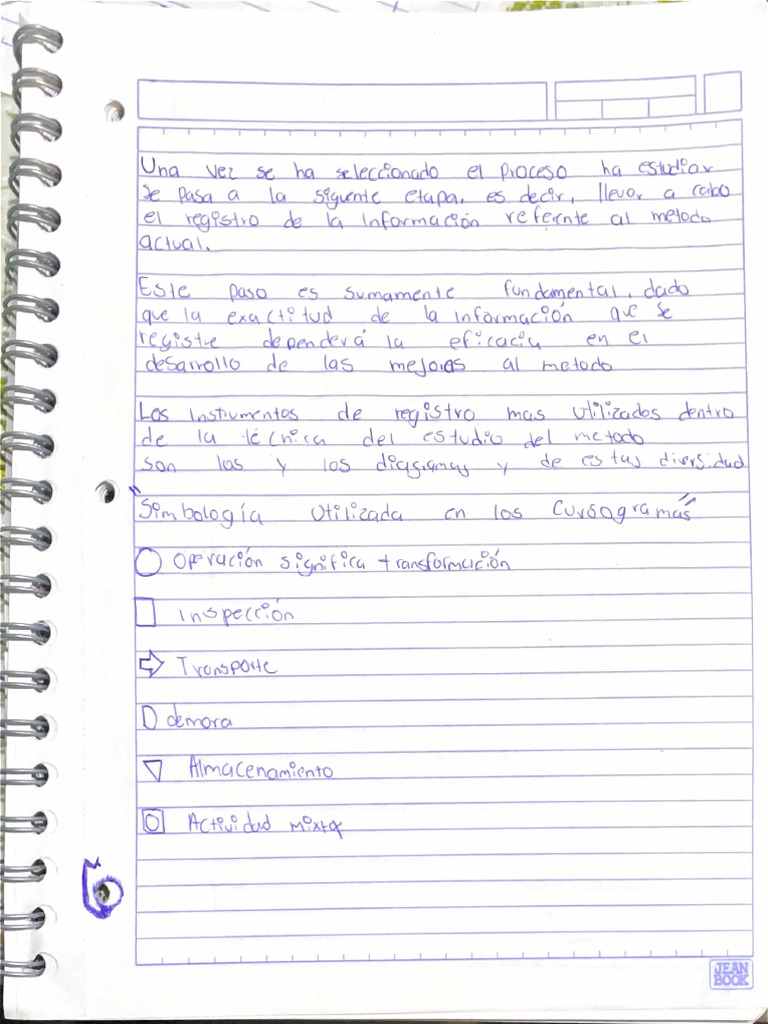 Una vez se ha seleccionado el proceso ha estudiar
se pasa a la siguente etapa, es decir, llevar a cabo
el registro de la información refernte al metodo
actual.
Este paso es sumamente fundamental, dado
que la exactitud de la información que se
registre dependerá la eficacia en el
desarrollo de las mejoras al metodo
Los instrumentos de registro mas utilizados dentro
de la técnica del estudio del metodo
son los y los diagramas y de estas diversidad
"Simbología utilizada en los Cursogramas"
Operación significa transformación
Inspección
Transporte
D demora
Almacenamiento
Actividad mixta
6
JEAN BOOK